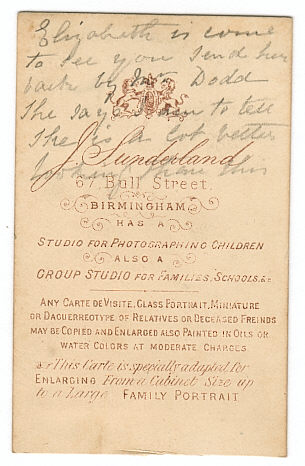 Elizabeth is come
to see you send her
back by Mrs Dodd
She says to tell
She is a lot better
looking than this
J. Sunderland
67, Bull Street,
BIRMINGHAM
HAS A
STUDIO FOR PHOTOGRAPHING CHILDREN
ALSO A
GROUP STUDIO FOR FAMILIES, SCHOOLS, &c
ANY CARTE DE VISITE, GLASS PORTRAIT, MINIATURE
OR DAGUERREOTYPE OF RELATIVES OR DECEASED FREINDS
MAY BE COPIED AND ENLARGED ALSO PAINTED IN OILS OR
WATER COLORS AT MODERATE CHARGES
This Carte is specially adapted for
ENLARGING From a Cabinet Size up
to a Large FAMILY PORTRAIT